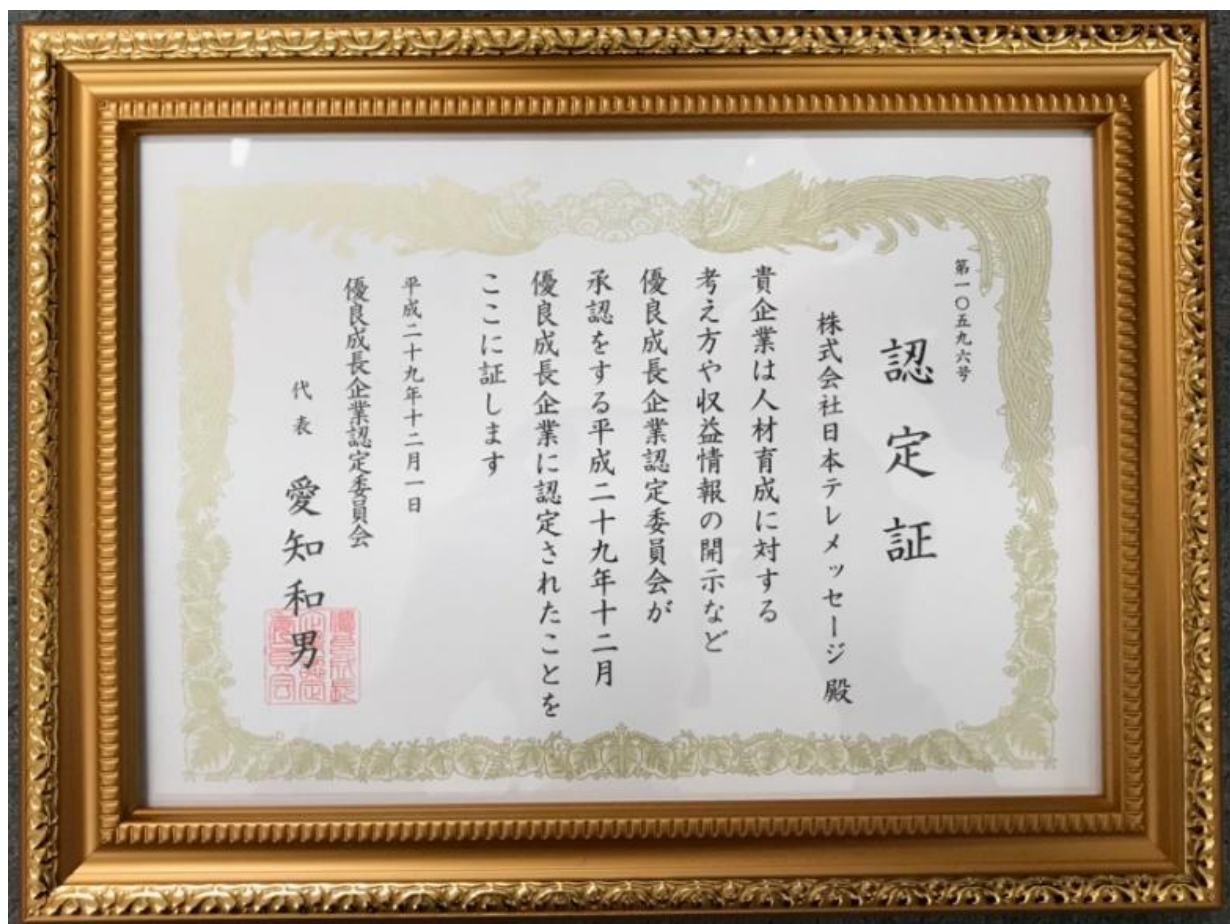 第一〇五九六号
認定証
株式会社日本テレメッセージ 殿
貴企業は人材育成に対する
考え方や収益情報の開示など
優良成長企業認定委員会が
承認をする平成二十九年十二月
優良成長企業に認定されたことを
ここに証します
平成二十九年十二月一日
優良成長企業認定委員会
代表 愛知和男